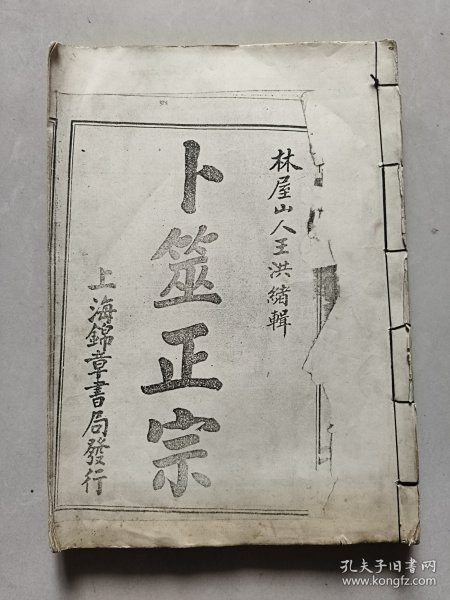 林屋山人王洪緒輯
卜筮正宗
上海錦章書局發行
孔夫子旧书网
www.kongfz.com